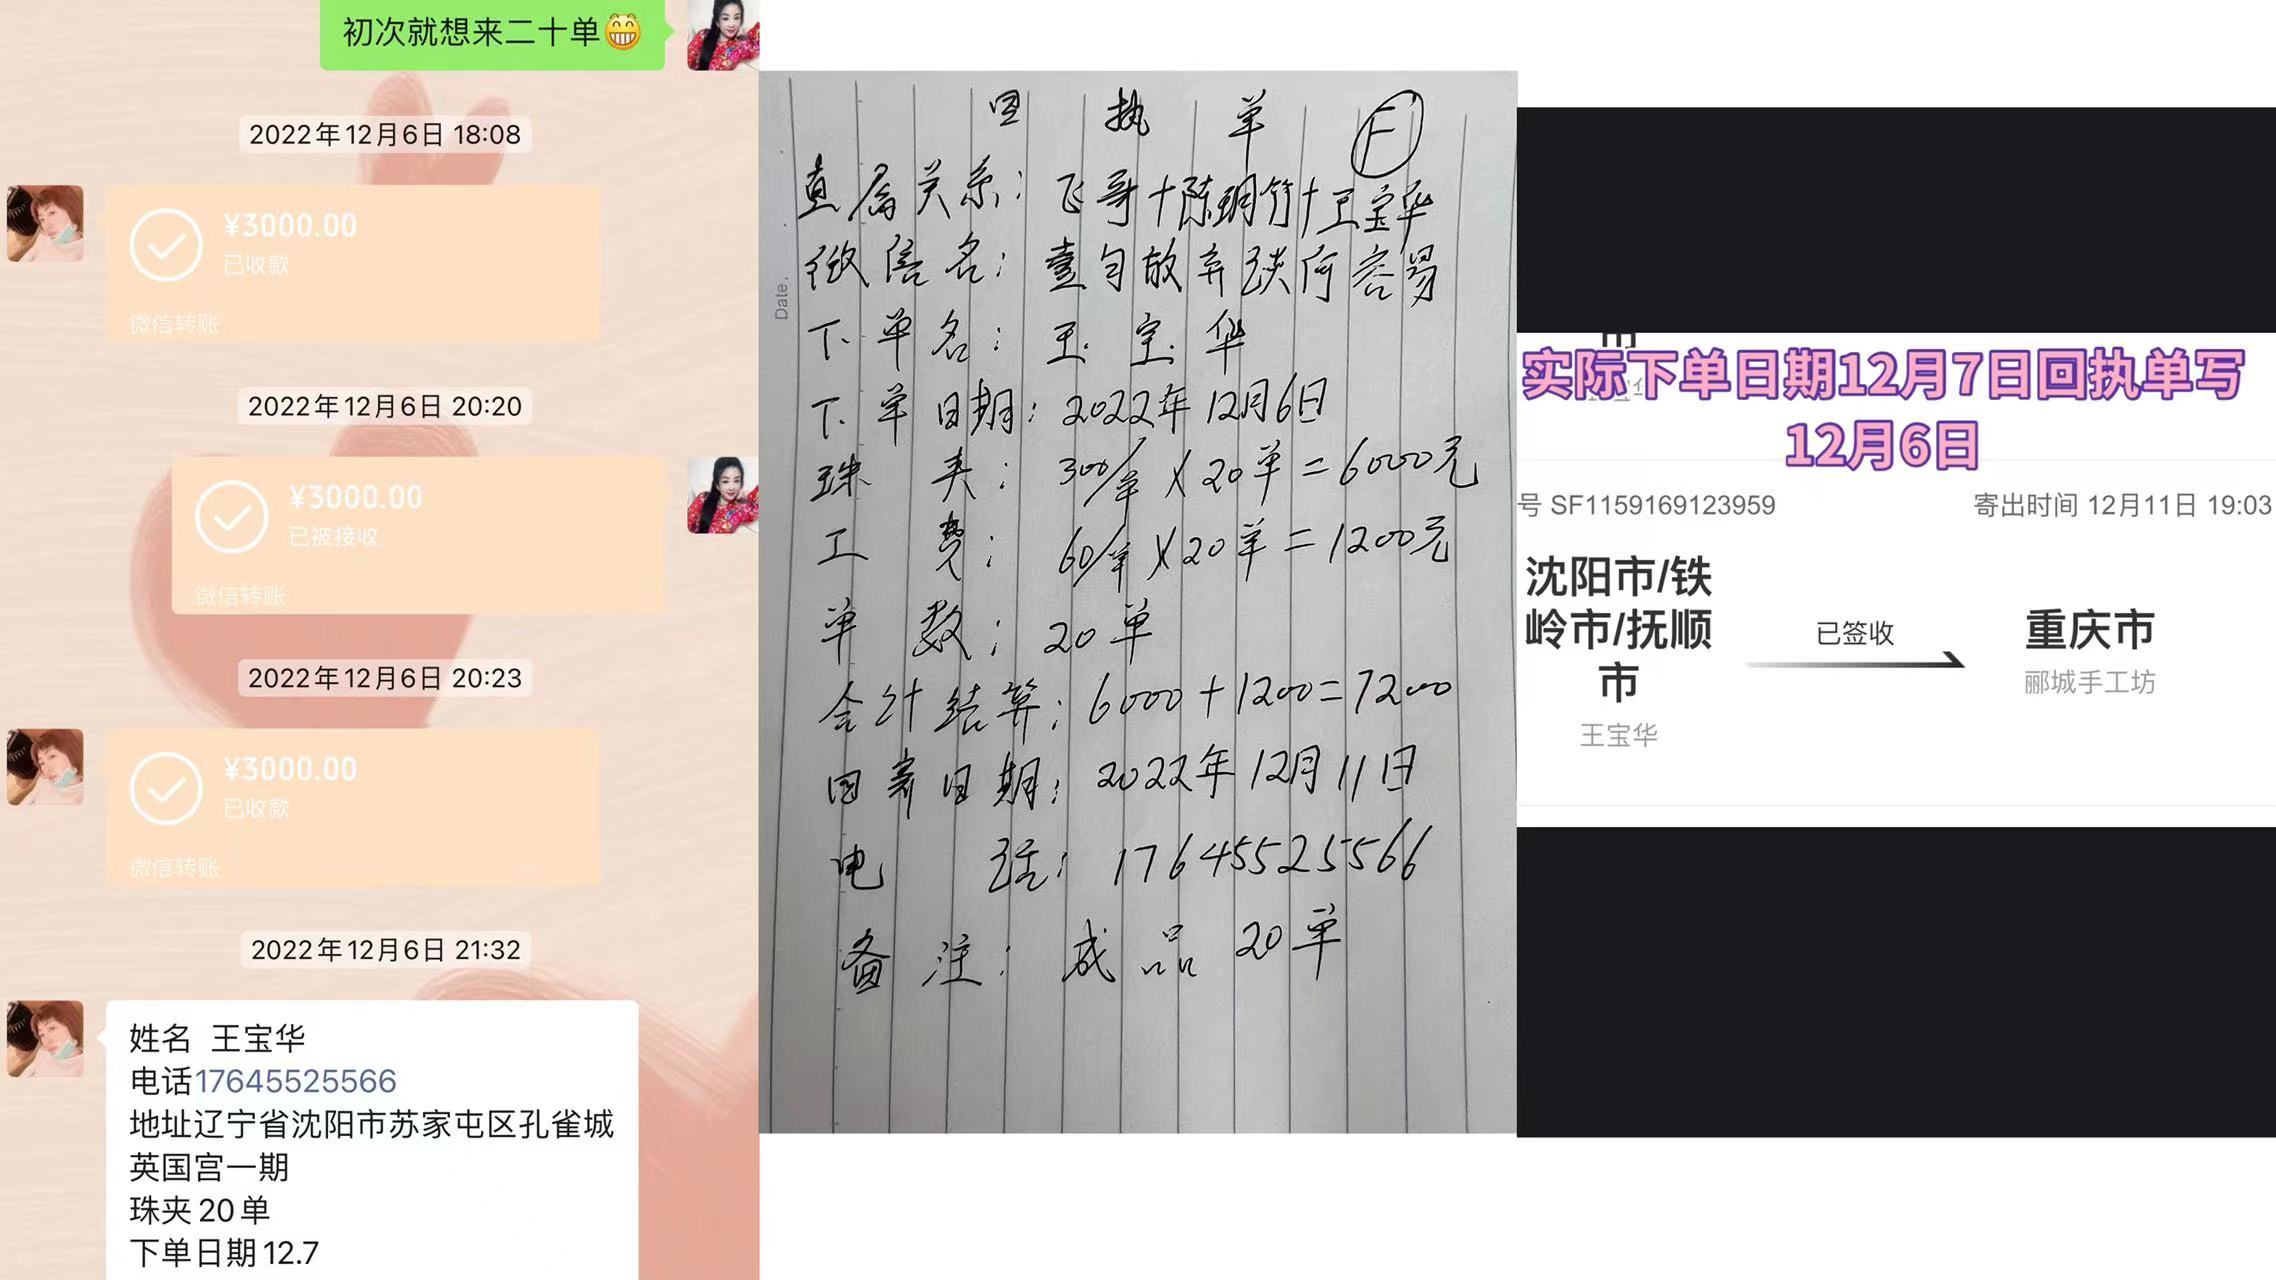 初次就想来二十单😁
2022年12月6日 18:08
¥3000.00
已收款
微信转账
2022年12月6日 20:20
¥3000.00
已被接收
微信转账
2022年12月6日 20:23
¥3000.00
已收款
微信转账
2022年12月6日 21:32
姓名 王宝华
电话17645525566
地址辽宁省沈阳市苏家屯区孔雀城
英国宫一期
珠夹20单
下单日期12.7
Date.
回执单 F
直属关系：飞哥+陈玥竹+王宝华
微信名：壹句放弃谈何容易
下单名：王宝华
下单日期：2022年12月6日
珠夹：300/单×20单=6000元
工费：60/单×20单=1200元
单数：20单
会计结算：6000+1200=7200
回寄日期：2022年12月11日
电话：17645525566
备注：成品20单
实际下单日期12月7日回执单写
12月6日
号 SF1159169123959
寄出时间 12月11日 19:03
沈阳市/铁
岭市/抚顺
市
王宝华
已签收
重庆市
郦城手工坊